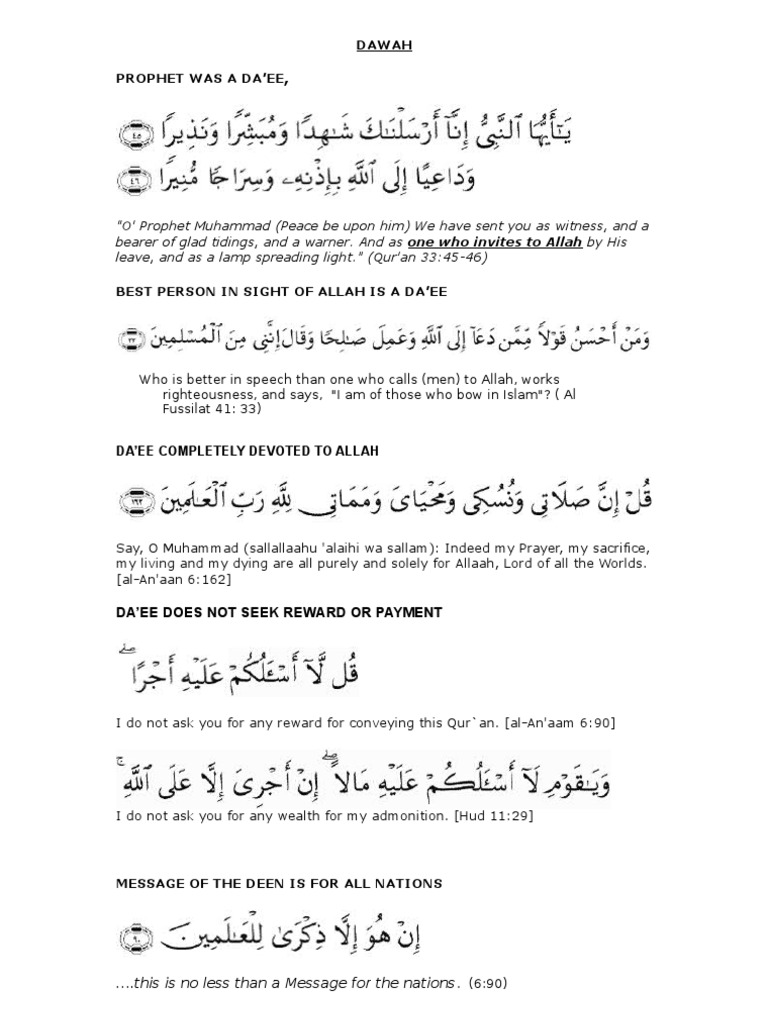 DAWAH
PROPHET WAS A DA’EE,
يَـٰٓأَيُّهَا ٱلنَّبِىُّ إِنَّآ أَرْسَلْنَـٰكَ شَـٰهِدًا وَمُبَشِّرًا وَنَذِيرًا ٤٥
وَدَاعِيًا إِلَى ٱللَّهِ بِإِذْنِهِۦ وَسِرَاجًا مُّنِيرًا ٤٦
"O' Prophet Muhammad (Peace be upon him) We have sent you as witness, and a
bearer of glad tidings, and a warner. And as one who invites to Allah by His
leave, and as a lamp spreading light." (Qur'an 33:45-46)
BEST PERSON IN SIGHT OF ALLAH IS A DA’EE
وَمَنْ أَحْسَنُ قَوْلًا مِّمَّن دَعَآ إِلَى ٱللَّهِ وَعَمِلَ صَـٰلِحًا وَقَالَ إِنَّنِى مِنَ ٱلْمُسْلِمِينَ ٣٣
Who is better in speech than one who calls (men) to Allah, works
righteousness, and says,  "I am of those who bow in Islam"? ( Al
Fussilat 41: 33)
DA’EE COMPLETELY DEVOTED TO ALLAH
قُلْ إِنَّ صَلَاتِى وَنُسُكِى وَمَحْيَاىَ وَمَمَاتِى لِلَّهِ رَبِّ ٱلْعَـٰلَمِينَ ١٦٢
Say, O Muhammad (sallallaahu 'alaihi wa sallam): Indeed my Prayer, my sacrifice,
my living and my dying are all purely and solely for Allaah, Lord of all the Worlds.
[al-An'aan 6:162]
DA’EE DOES NOT SEEK REWARD OR PAYMENT
قُل لَّآ أَسْـَٔلُكُمْ عَلَيْهِ أَجْرًا ۖ
I do not ask you for any reward for conveying this Qur`an. [al-An'aam 6:90]
وَيَـٰقَوْمِ لَآ أَسْـَٔلُكُمْ عَلَيْهِ مَالًا ۖ إِنْ أَجْرِىَ إِلَّا عَلَى ٱللَّهِ ۚ
I do not ask you for any wealth for my admonition. [Hud 11:29]
MESSAGE OF THE DEEN IS FOR ALL NATIONS
إِنْ هُوَ إِلَّا ذِكْرَىٰ لِلْعَـٰلَمِينَ ٩٠
….this is no less than a Message for the nations. (6:90)